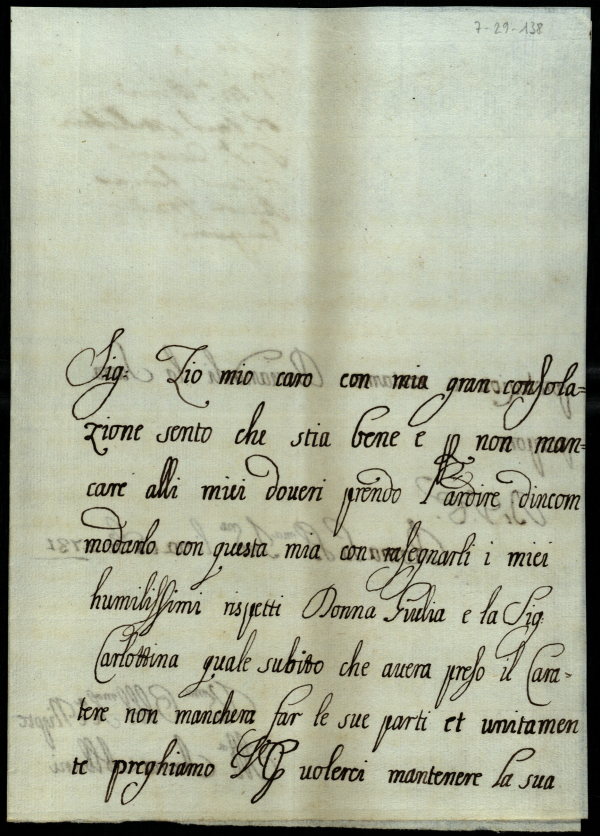 7-29-138
Sig: Zio mio caro con mia gran consola=
zione sento che stia bene e p non man=
care alli miei doveri prendo l'ardire dincom
modarlo con questa mia con rasegnarli i miei
humilissimi rispetti Donna Giulia e la Sig:
Carlottina quale subito che avera preso il Cara=
tere non manchera far le sue parti et unitamen
te preghiamo VS volerci mantenere la sua